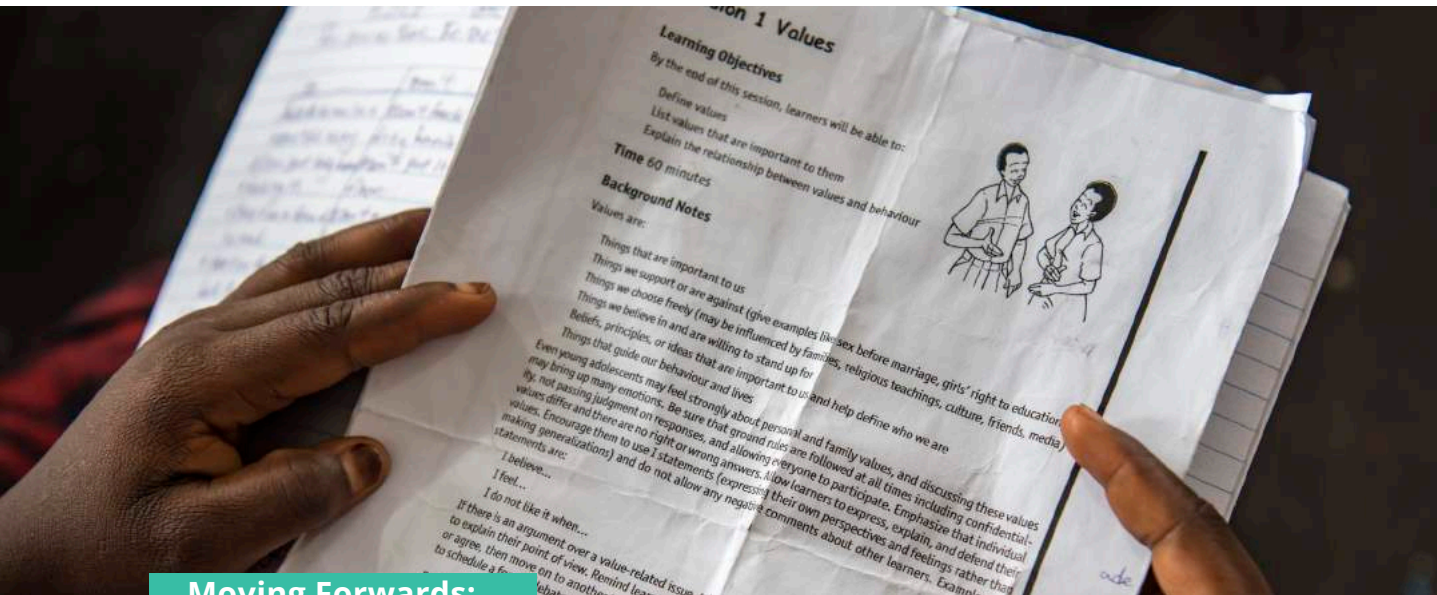 ion 1 Values
Learning Objectives
By the end of this session, learners will be able to:
Define values
List values that are important to them
Explain the relationship between values and behaviour
Time 60 minutes
Background Notes
Values are:
Things that are important to us
Things we support or are against (give examples like sex before marriage, girls' right to education
Things we choose freely (may be influenced by families, religious teachings, culture, friends, media)
Things we believe in and are willing to stand up for
Beliefs, principles, or ideas that are important to us and help define who we are
Things that guide our behaviour and lives
Even young adolescents may feel strongly about personal and family values, and discussing these values
may bring up many emotions. Be sure that ground rules are followed at all times including confidential-
ity, not passing judgment on responses, and allowing everyone to participate. Emphasize that individual
values differ and there are no right or wrong answers. Allow learners to express, explain, and defend their
values. Encourage them to use I statements (express their own perspectives and feelings rather than
making generalizations) and do not allow any negative comments about other learners. Example
statements are:
I believe...
I feel...
I do not like it when...
If there is an argument over a value-related issue,
to explain their point of view. Remind
or agree, then move on to another
to schedule a
Moving Forwards: